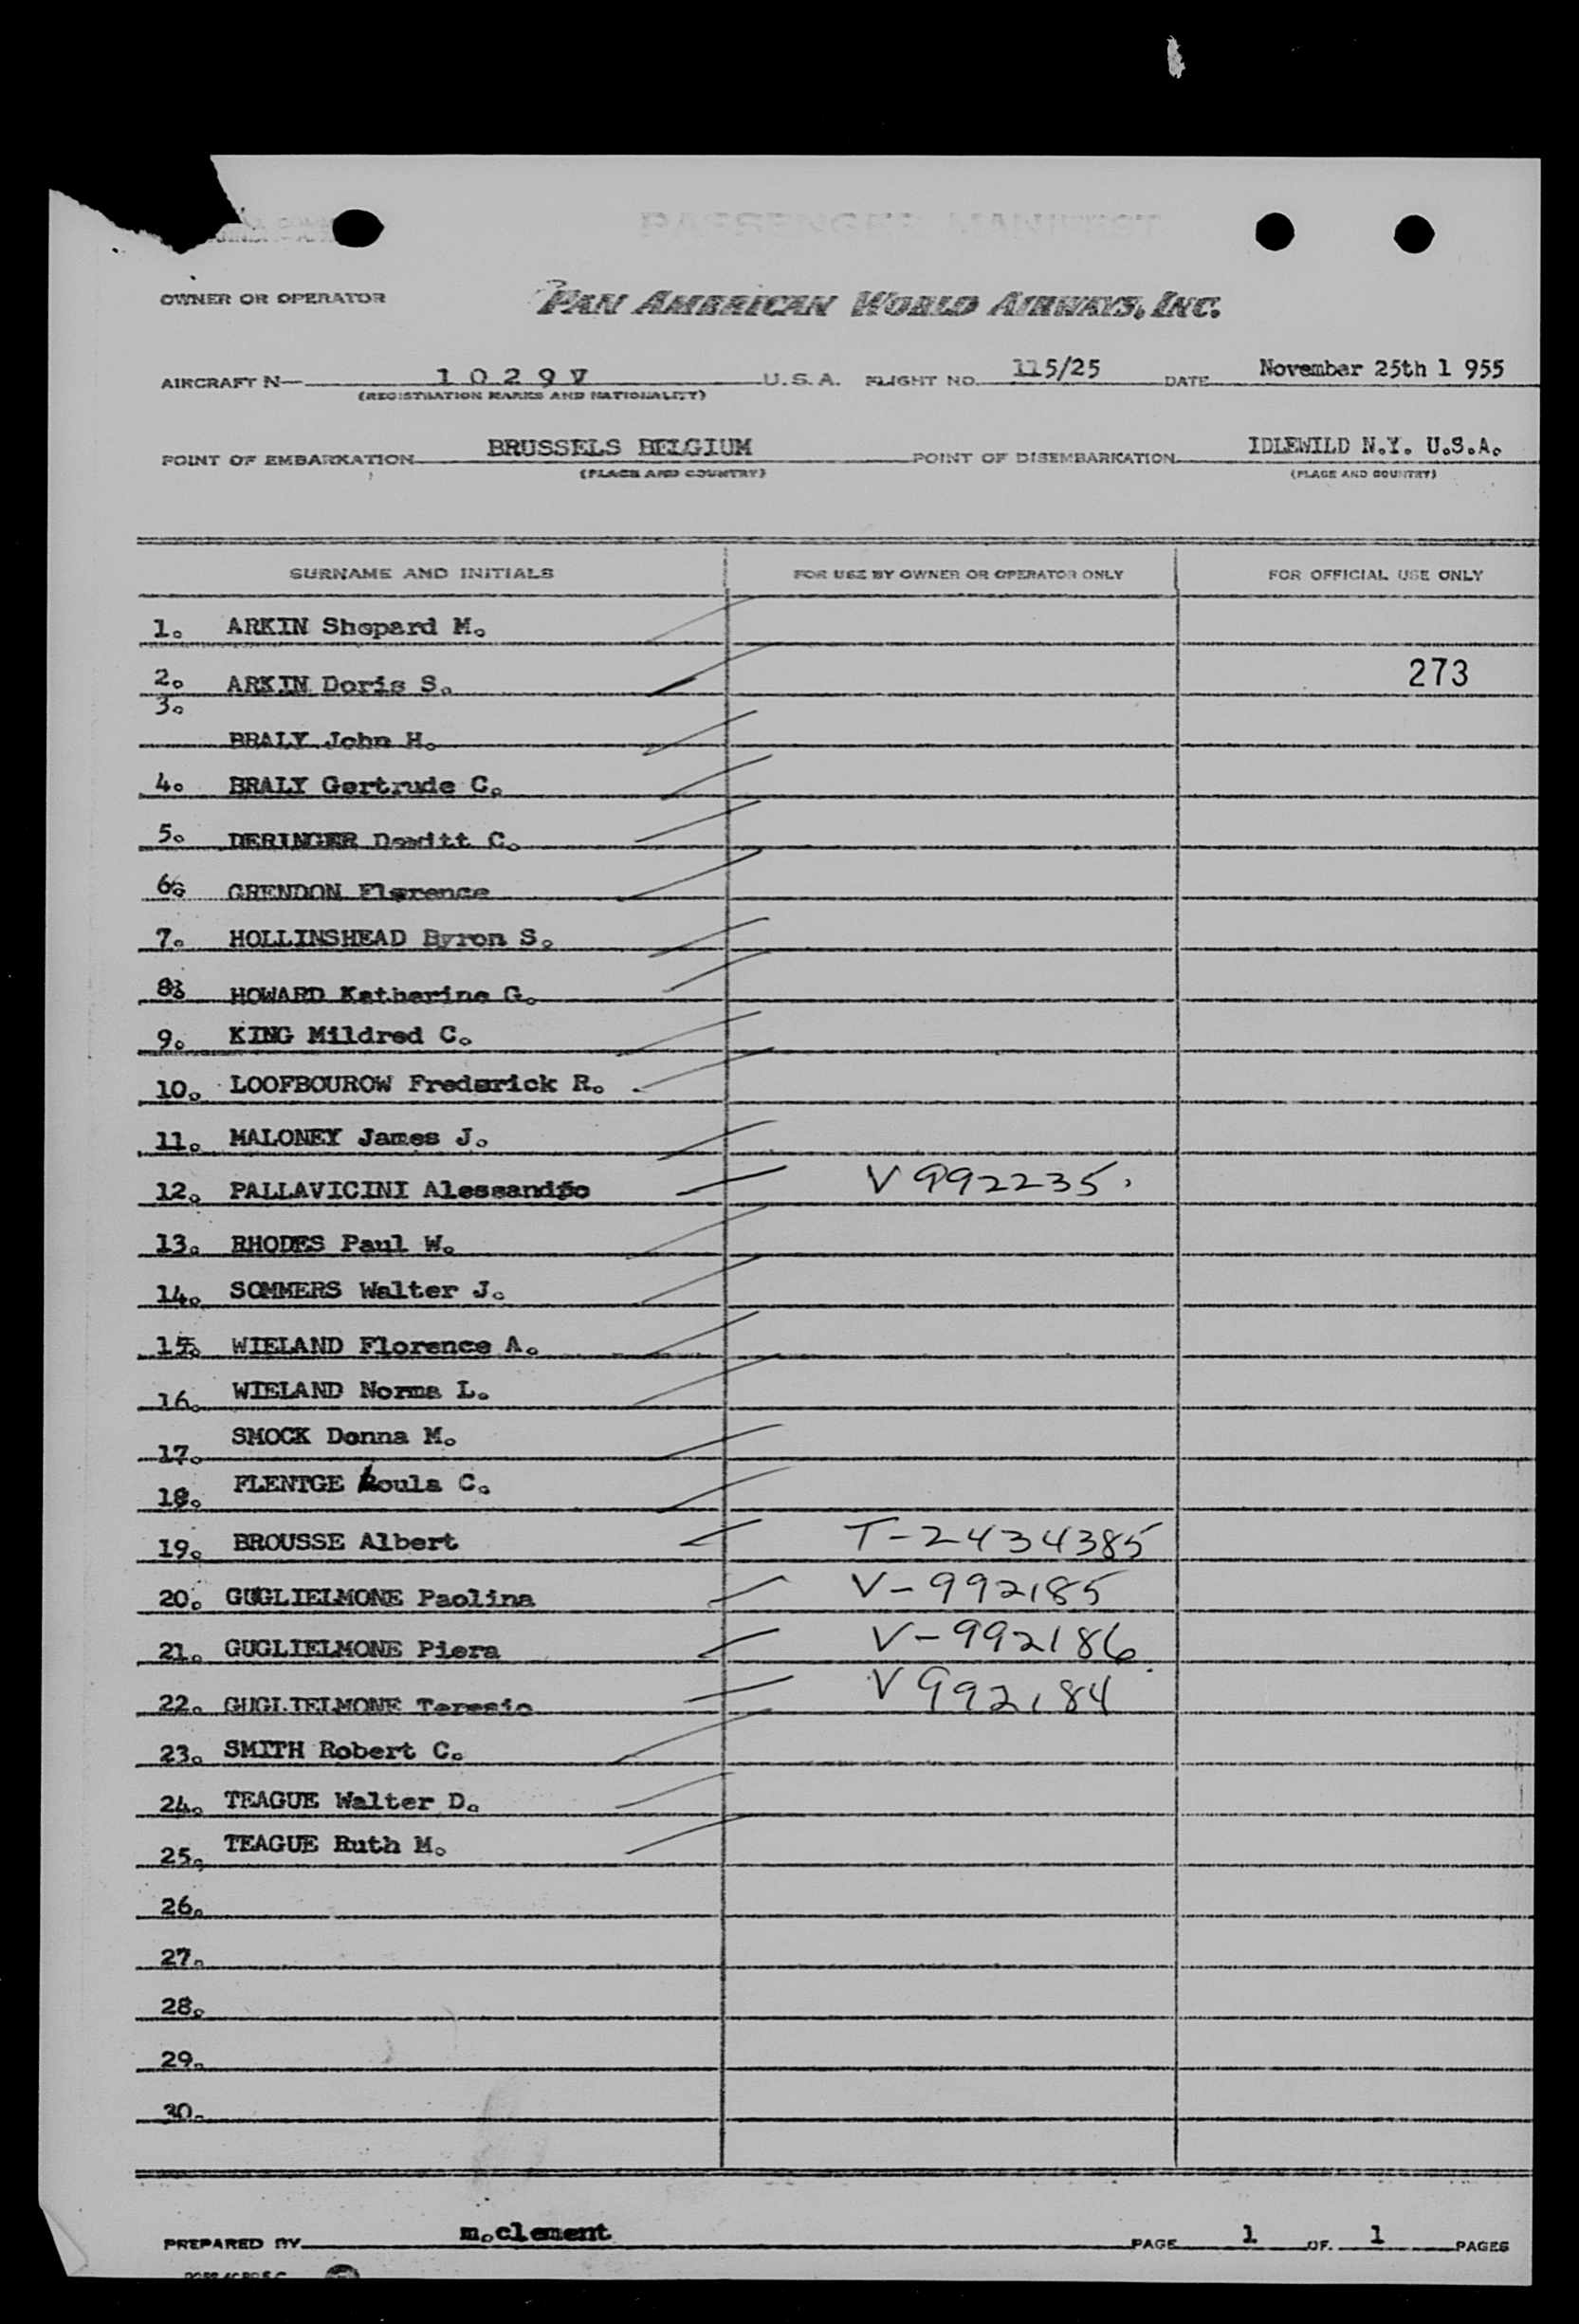 PASSENGER MANIFEST
OWNER OR OPERATOR PAN AMERICAN WORLD AIRWAYS, INC.
AIRCRAFT N— 1029V U.S.A. FLIGHT NO. 115/25 DATE November 25th 1 955
(REGISTRATION MARKS AND NATIONALITY)
POINT OF EMBARKATION BRUSSELS BELGIUM POINT OF DISEMBARKATION IDLEWILD N.Y. U.S.A.
(PLACE AND COUNTRY) (PLACE AND COUNTRY)
SURNAME AND INITIALS FOR USE BY OWNER OR OPERATOR ONLY FOR OFFICIAL USE ONLY
1. ARKIN Shepard M.
2. ARKIN Doris S. 273
3. BRALY John H.
4. BRALY Gertrude C.
5. DERINGER Dewitt C.
6. GRENDON Florence
7. HOLLINSHEAD Byron S.
8. HOWARD Katherine G.
9. KING Mildred C.
10. LOOFBOUROW Frederick R.
11. MALONEY James J.
12. PALLAVICINI Alessandro V 992235.
13. RHODES Paul W.
14. SOMMERS Walter J.
15. WIELAND Florence A.
16. WIELAND Norma L.
17. SMOCK Donna M.
18. FLENTGE Loula C.
19. BROUSSE Albert T-2434385
20. GUGLIELMONE Paolina V-992185
21. GUGLIELMONE Piera V-992186
22. GUGLIELMONE Teresio V 992184
23. SMITH Robert C.
24. TEAGUE Walter D.
25. TEAGUE Ruth M.
26.
27.
28.
29.
30.
PREPARED BY m.clement PAGE 1 OF 1 PAGES